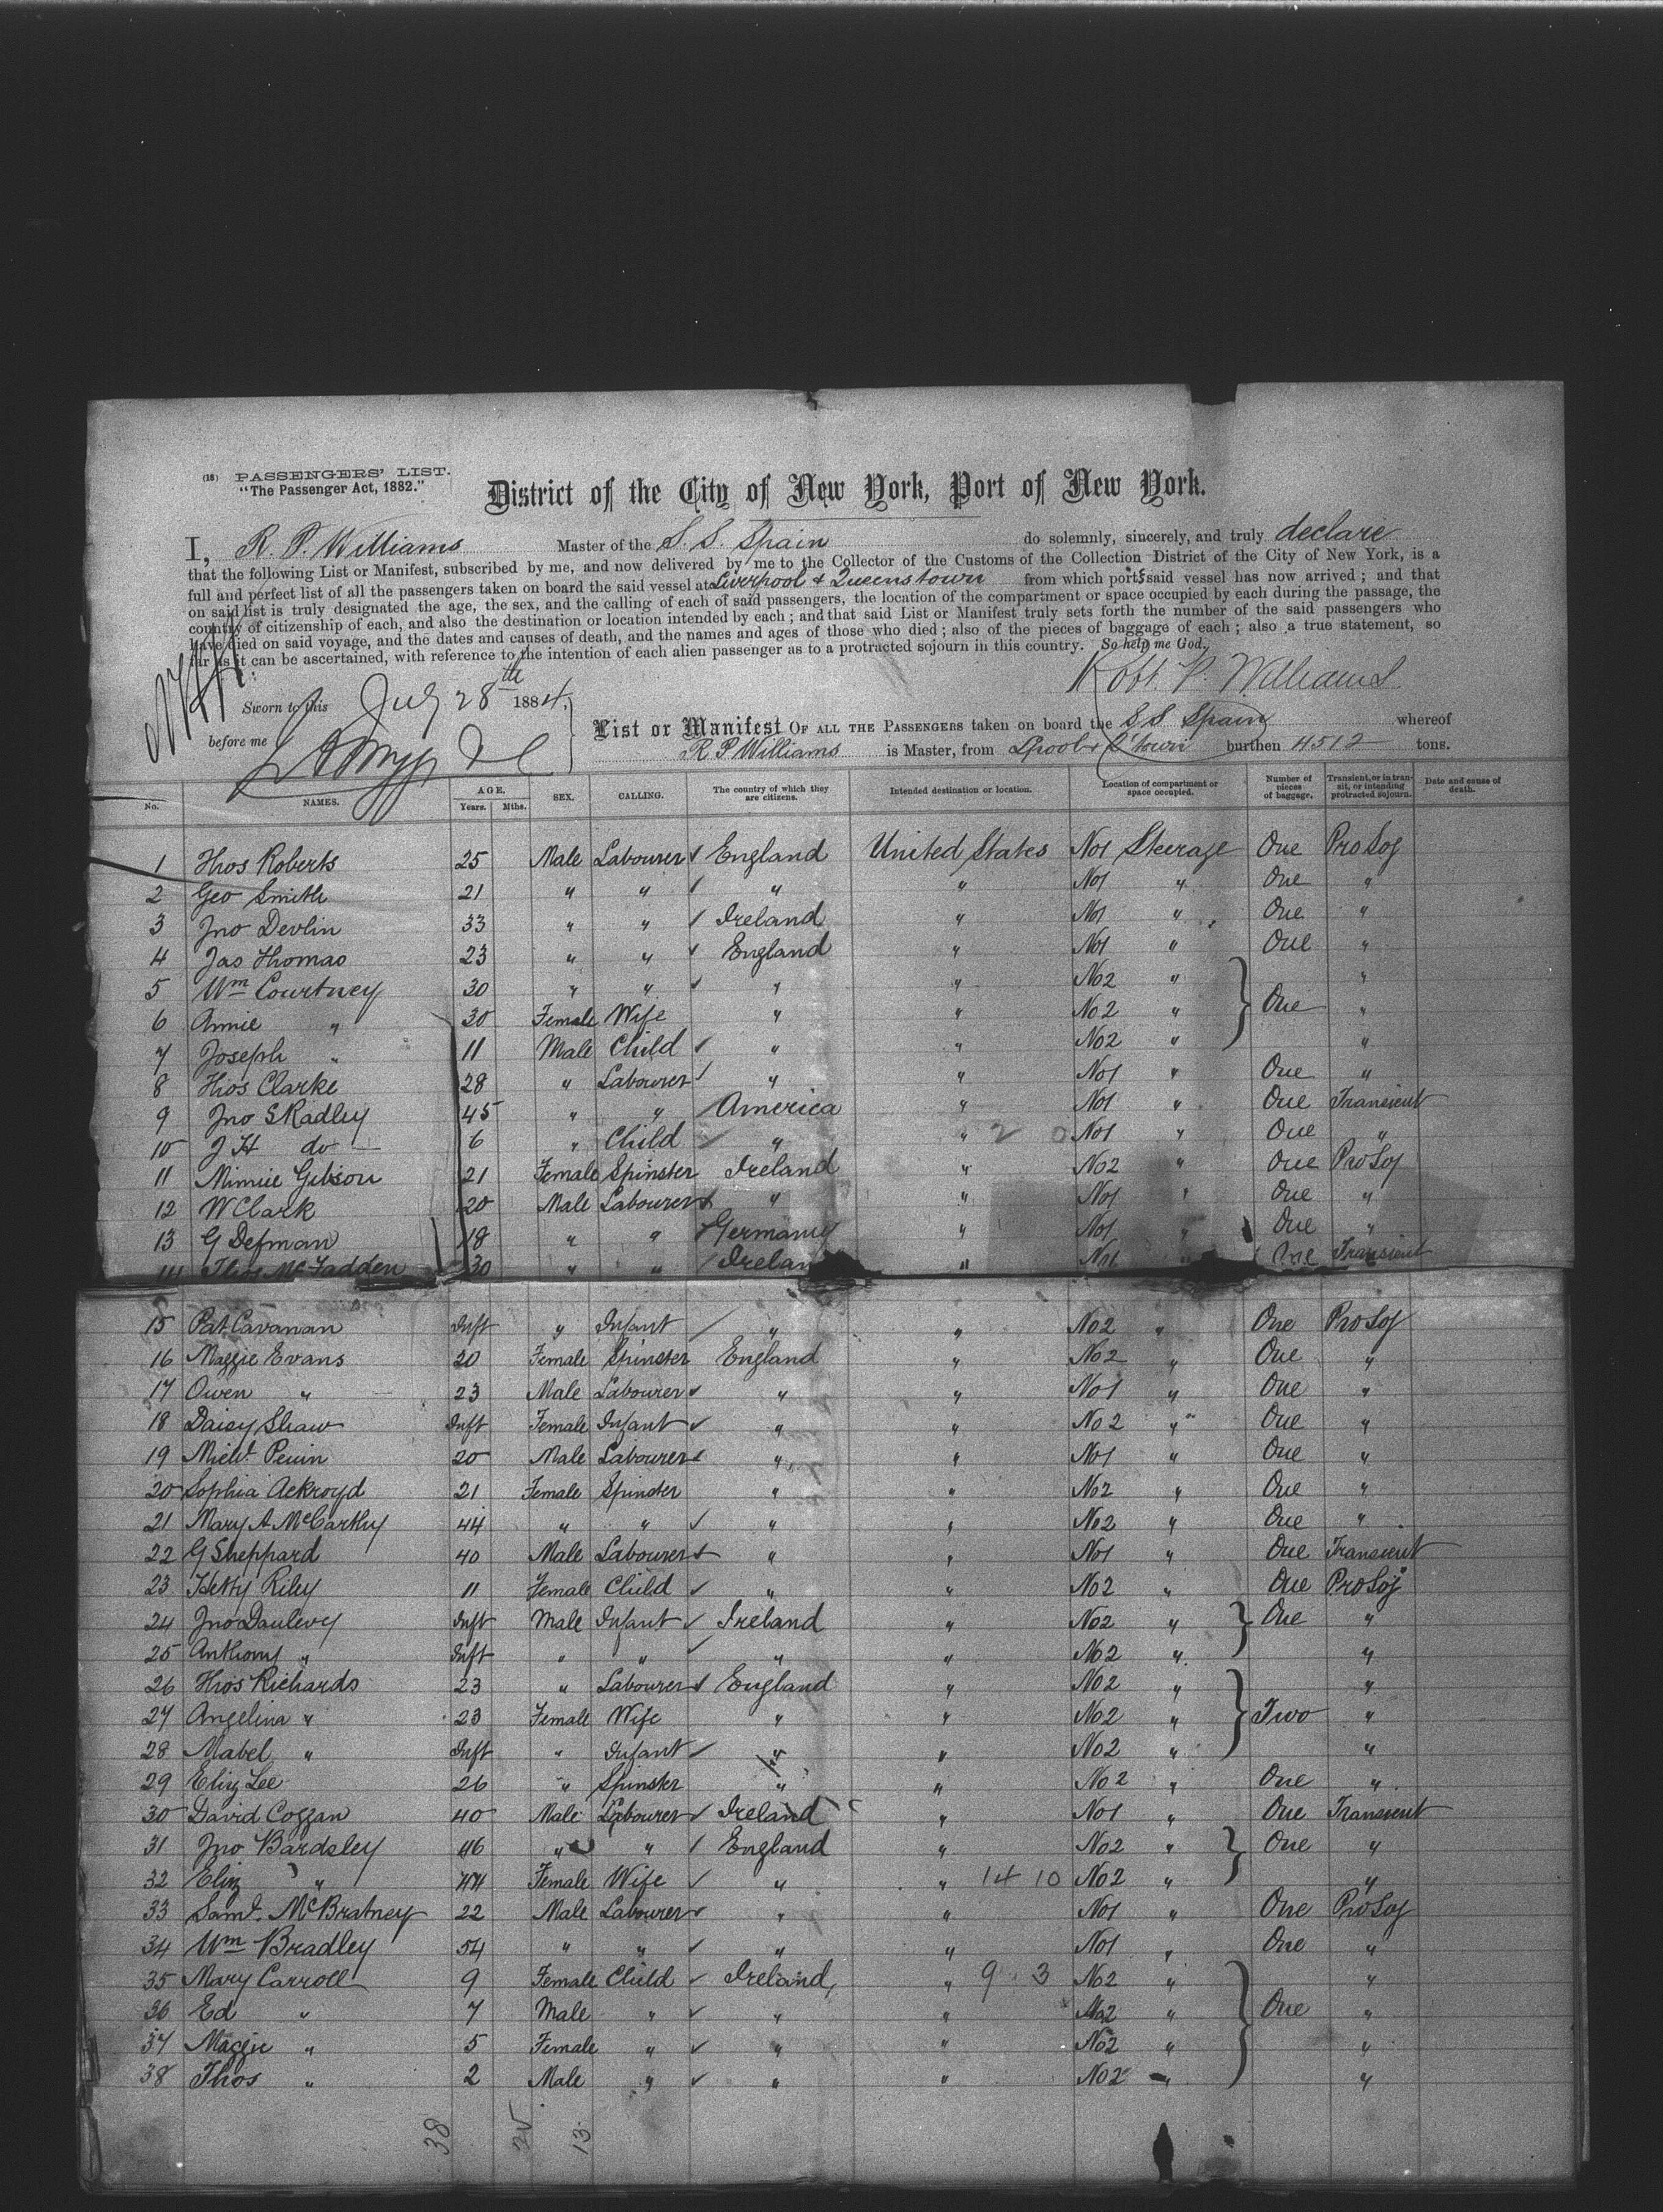 (18) PASSENGERS' LIST.
"The Passenger Act, 1882."
District of the City of New York, Port of New York.
I, R. P. Williams Master of the S. S. Spain do solemnly, sincerely, and truly declare
that the following List or Manifest, subscribed by me, and now delivered by me to the Collector of the Customs of the Collection District of the City of New York, is a
full and perfect list of all the passengers taken on board the said vessel at Liverpool & Queenstown from which ports said vessel has now arrived; and that
on said list is truly designated the age, the sex, and the calling of each of said passengers, the location of the compartment or space occupied by each during the passage, the
country of citizenship of each, and also the destination or location intended by each; and that said List or Manifest truly sets forth the number of the said passengers who
have died on said voyage, and the dates and causes of death, and the names and ages of those who died; also of the pieces of baggage of each; also a true statement, so
far as it can be ascertained, with reference to the intention of each alien passenger as to a protracted sojourn in this country. So help me God.
Robt. P. Williams
Sworn to this July 28th 1884.
before me
List or Manifest OF ALL THE PASSENGERS taken on board the S S Spain whereof
R P Williams is Master, from Lpool & Q'town burthen 4512 tons.
No. NAMES. AGE. Years. Mths. SEX. CALLING. The country of which they are citizens. Intended destination or location. Location of compartment or space occupied. Number of pieces of baggage. Transient, or in transit, or intending protracted sojourn. Date and cause of death.
1 Thos Roberts 25 Male Labourer England United States No1 Steerage One ProSoj
2 Geo Smith 21 " " " " No1 " One "
3 Jno Devlin 33 " " Ireland " No1 " One "
4 Jas Thomas 23 " " England " No1 " One "
5 Wm Courtney 30 " " " " No2 " "
6 Annie " 30 Female Wife " " No2 " One "
7 Joseph " 11 Male Child " " No2 " "
8 Thos Clarke 28 " Labourer " " No1 " One "
9 Jno S Radley 45 " " America " No1 " One Transient
10 J H do 6 " Child " " 2 0 No1 " One "
11 Minnie Gibson 21 Female Spinster Ireland " No2 " One ProSoj
12 W Clark 20 Male Labourer " " No1 " One "
13 G Defman 18 " " Germany " No1 " One "
14 Thos McFadden 30 " " Ireland " No1 " One Transient
15 Pat Cavanan Inft " Infant " " No2 " One ProSoj
16 Maggie Evans 20 Female Spinster England " No2 " One "
17 Owen " 23 Male Labourer " " No1 " One "
18 Daisy Shaw Inft Female Infant " " No2 " One "
19 Michl. 20 Male Labourer " " No1 " One "
20 Sophia Ackroyd 21 Female Spinster " " No2 " One "
21 Mary A McCarthy 44 " " " " No2 " One "
22 G Sheppard 40 Male Labourer " " No1 " One Transient
23 Hetty Riley 11 Female Child " " No2 " One ProSoj
24 Jno Inft Male Infant Ireland " No2 " One "
25 Anthony " Inft " " " " No2 " "
26 Thos Richards 23 " Labourer England " No2 " "
27 Angelina " 23 Female Wife " " No2 " Two "
28 Mabel " Inft " Infant " " No2 " "
29 Eliz Lee 26 " Spinster " " No2 " One "
30 David Coggan 40 Male Labourer Ireland " No1 " One Transient
31 Jno Bardsley 46 " " England " No2 " One "
32 Eliz " 44 Female Wife " " 14 10 No2 " "
33 Saml. McBratney 22 Male Labourer " " No1 " One ProSoj
34 Wm Bradley 54 " " " " No1 " One "
35 Mary Carroll 9 Female Child Ireland " 9 3 No2 " "
36 Ed " 7 Male " " " No2 " One "
37 Maggie " 5 Female " " " No2 " "
38 Thos " 2 Male " " " No2 " "
38 25 13